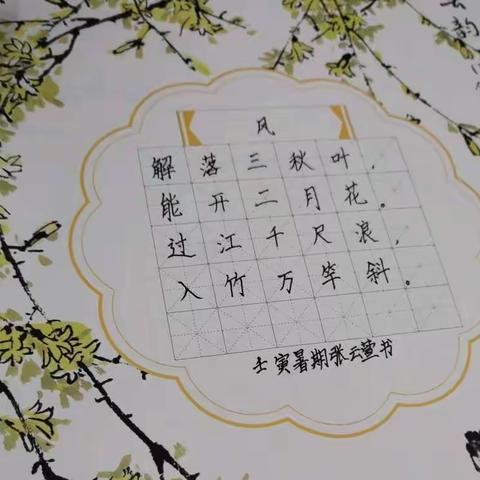 风
解落三秋叶，
能开二月花。
过江千尺浪，
入竹万竿斜。
壬寅暑期张云萱书
韵